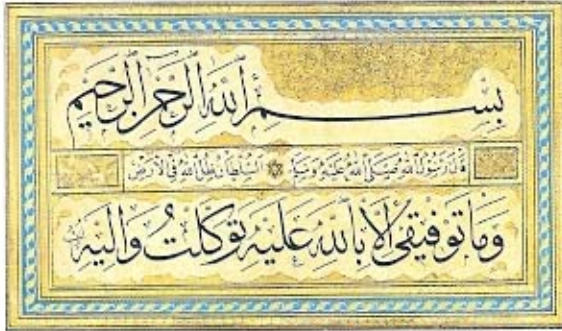 بِسْمِ ٱللّٰهِ الرَّحْمٰنِ الرَّحِيْمِ
قَالَ رَسُولُ اللهِ صَلَّى اللهُ عَلَيْهِ وَسَلَّمَ السُّلْطَانُ ظِلُّ اللهِ فِي الْاَرْضِ
وَمَا تَوْفِيقِى اِلَّا بِاللّٰهِ عَلَيْهِ تَوَكَّلْتُ وَاِلَيْهِ